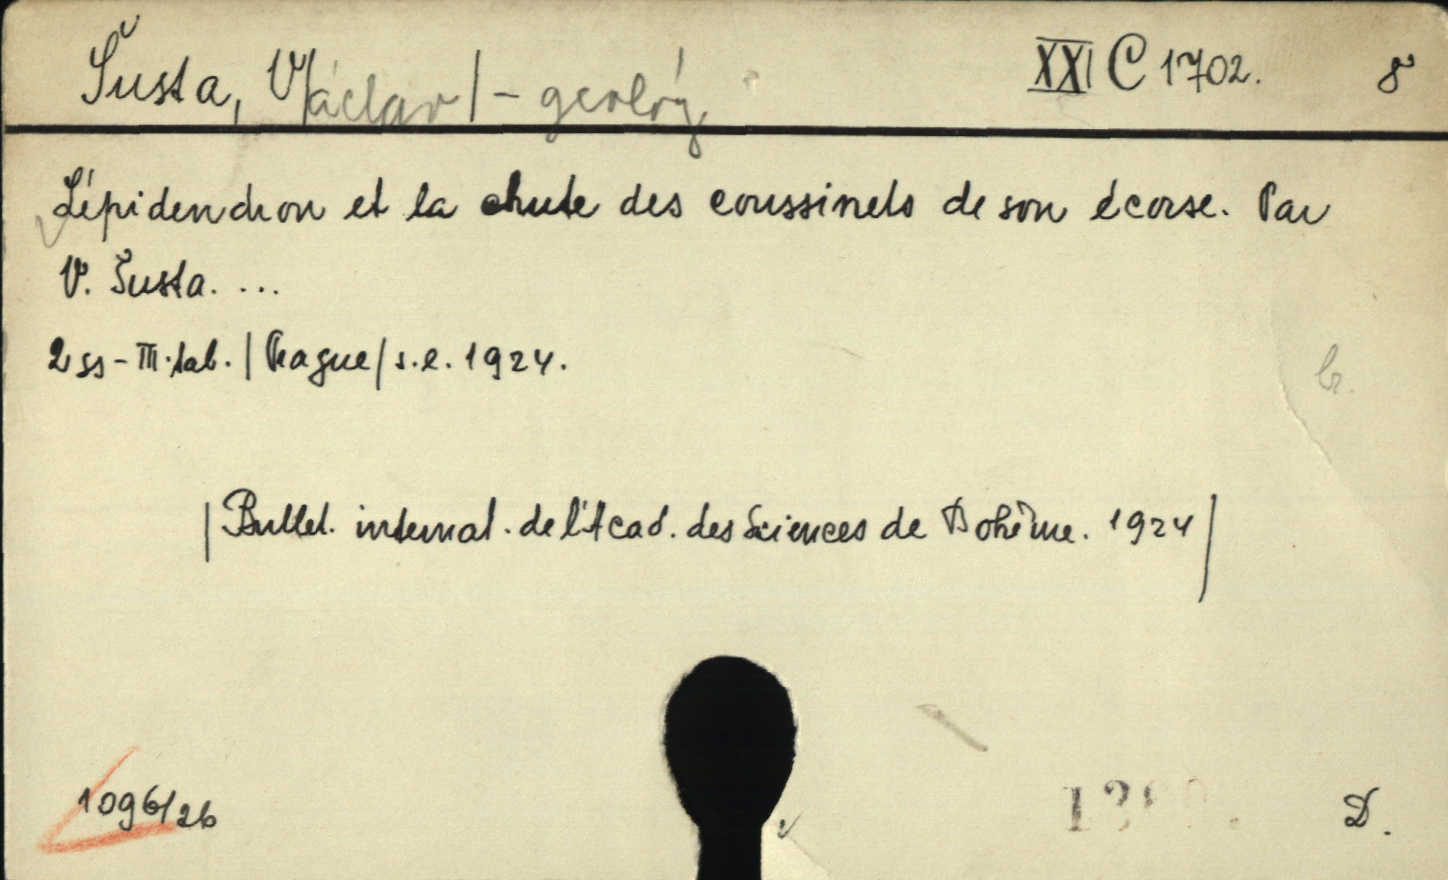 Šusta, V/áclav/ - geológ XXI C 1702. 8°
Lépidendron et la chute des coussinets de son écorse. Par
V. Šusta. ...
2 ss - III. tab. / Prague / s.e. 1924.
br.
/ Bullet. internat. de l'Acad. des Sciences de Bohême. 1924 /
1096/26
D.